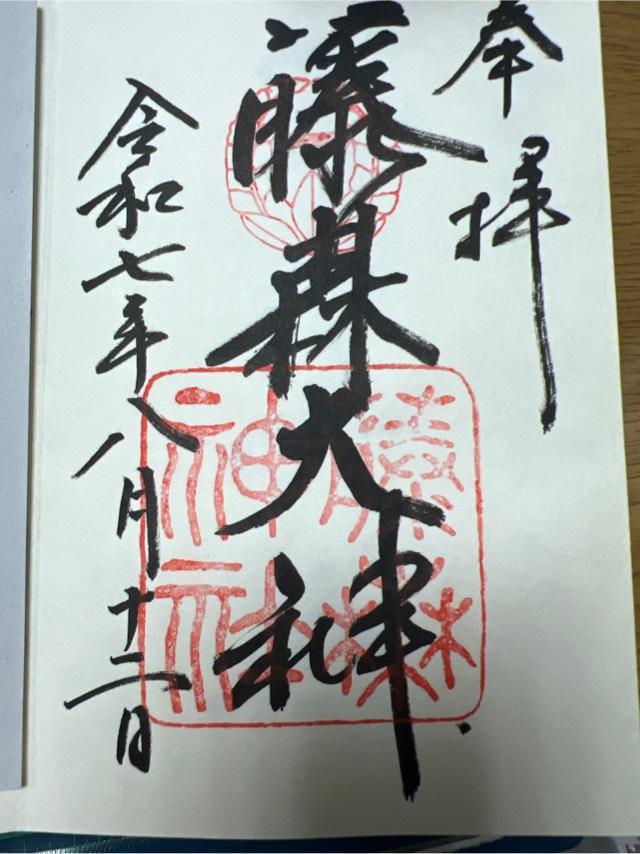 奉拝
藤森大神
令和七年八月十二日
藤森
神社